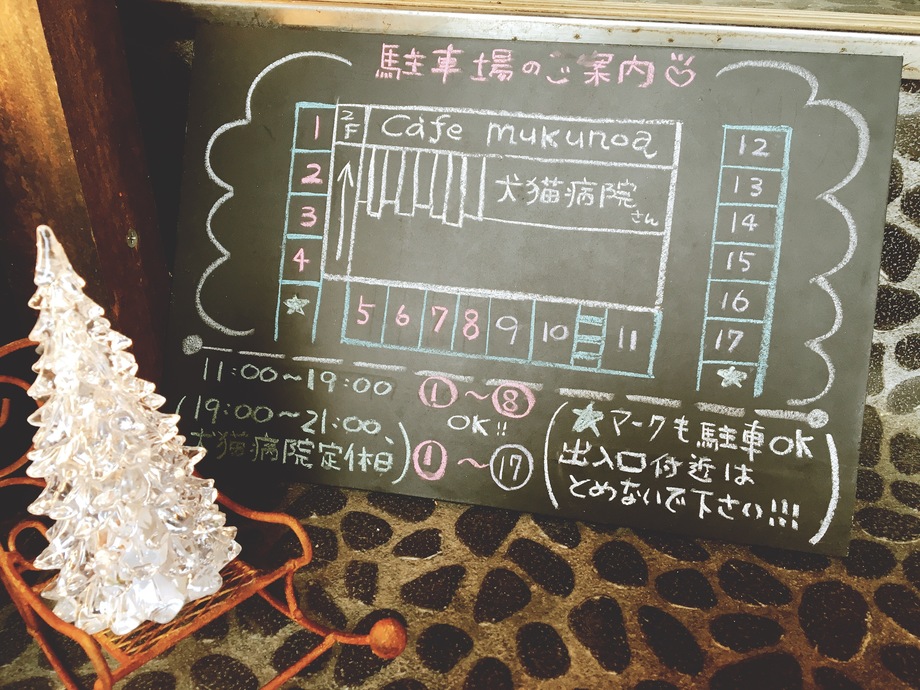 駐車場のご案内
1
2
3
4
2F
Cafe mukunoa
犬猫病院さん
5 6 7 8 9 10 11
12
13
14
15
16
17
11:00~19:00 ①~⑧ OK!!
(19:00~21:00、犬猫病院定休日) ①~⑰
(★マークも駐車OK
出入口付近は
とめないで下さい!!!)